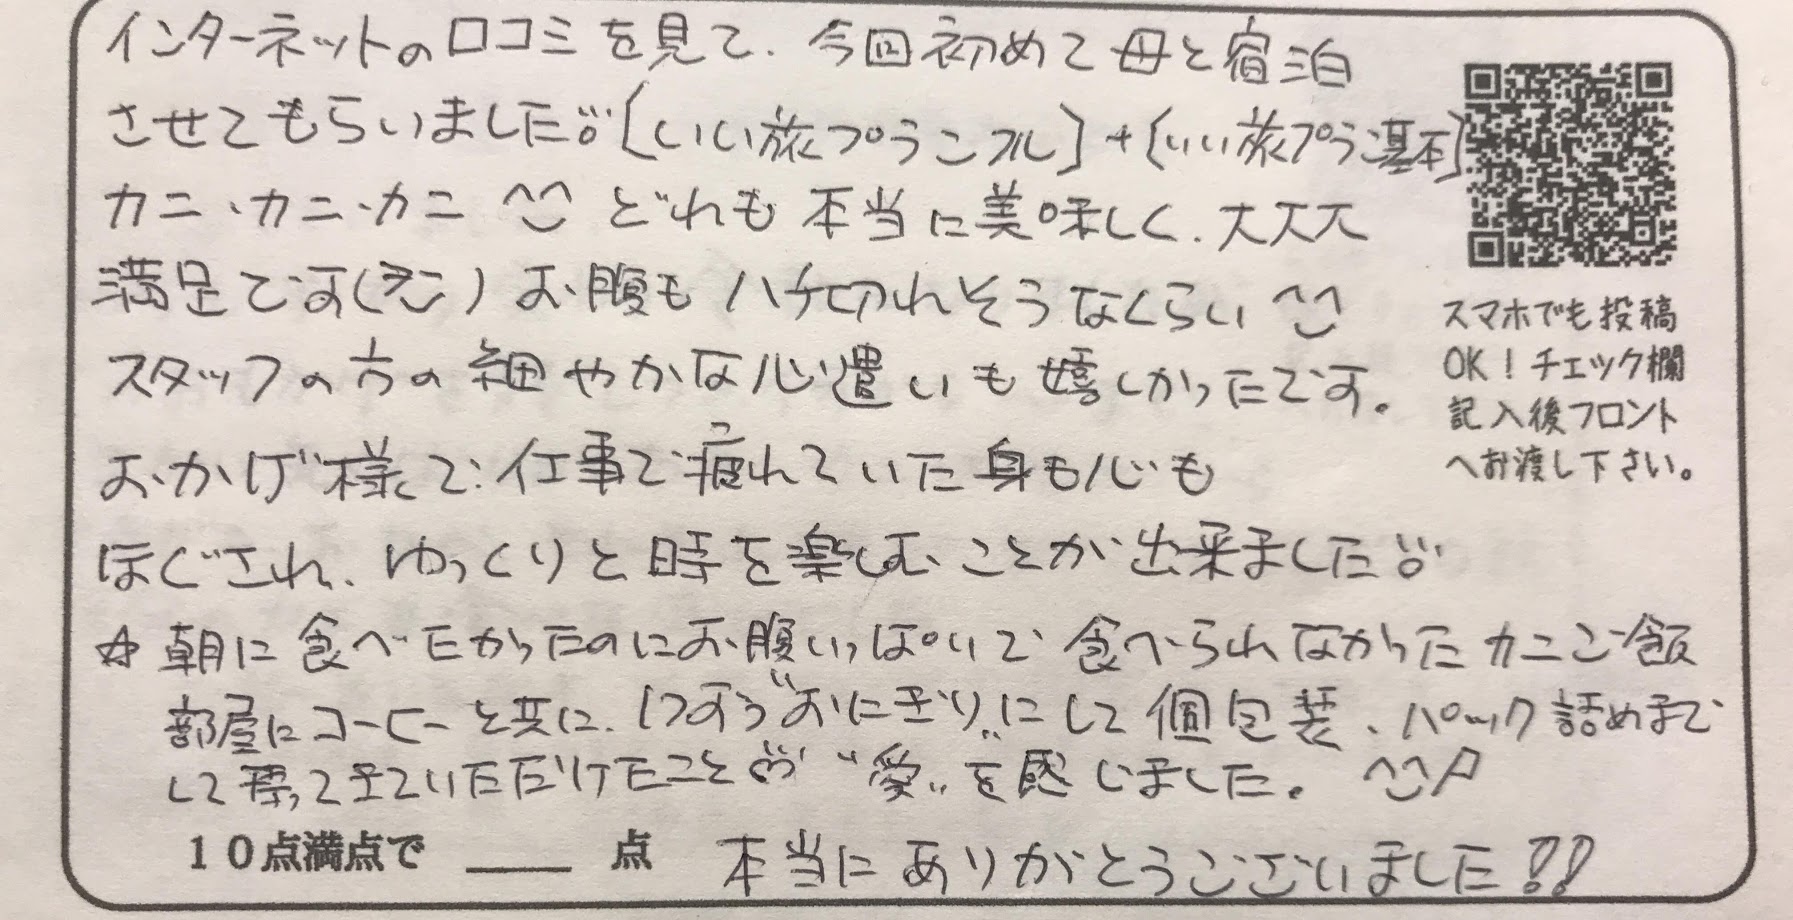 インターネットの口コミを見て、今回初めて母と宿泊
させてもらいました!!〔いい旅プランフル〕+〔いい旅プラン基本〕
カニ、カニ、カニ ^^ どれも本当に美味しく、大大大
満足です(笑) お腹もハチ切れそうなくらい ^^
スタッフの方の細やかな心遣いも嬉しかったです。
おかげ様で、仕事で疲れていた身も心も
ほぐされ、ゆっくりと時を楽しむことが出来ました!!
☆ 朝に食べたかったのにお腹いっぱいで食べられなかったカニご飯
部屋にコーヒーと共に、"おにぎり"にして個包装、パック詰めまで
して持ってきていただけたこと "愛"を感じました。 ^^
10点満点で ___ 点 本当にありがとうございました!!
スマホでも投稿
OK!チェック欄
記入後フロント
へお渡し下さい。